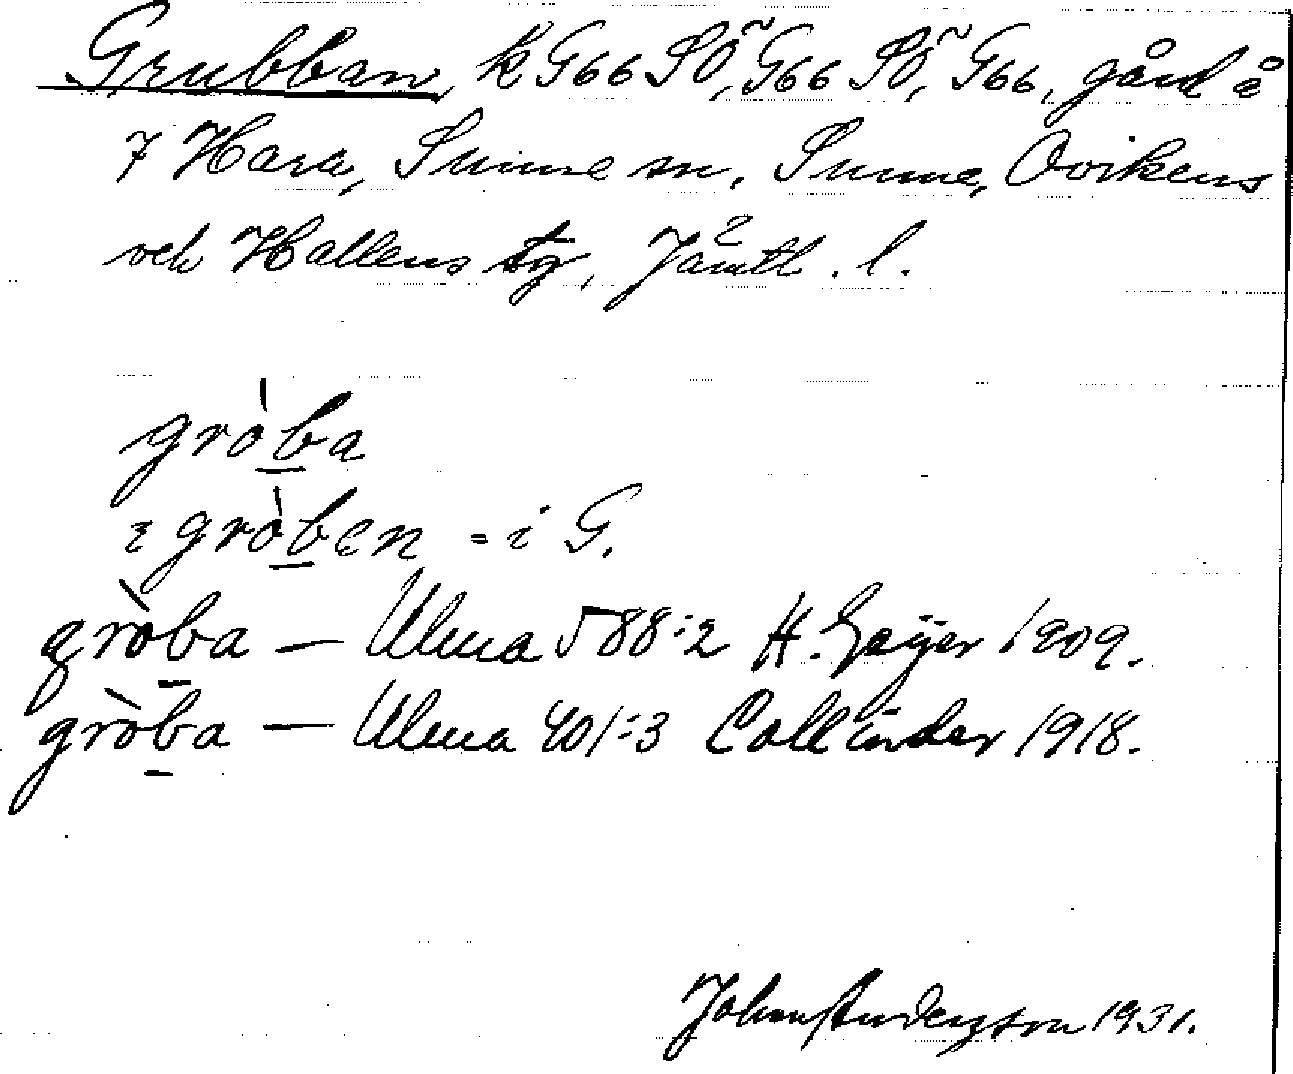 Grubban, k G66 SÖ, G66 SÖ, G66, gård å
7 Hara, Sunne sn, Sunne, Ovikens
och Hallens tg, Jämtl. l.
gròba
ɪ gròben = i G.
gròba – Ulma 588:2 H. Geijer 1909.
gròba – Ulma 401:3 Collinder 1918.
Johan Anderzson 1931.